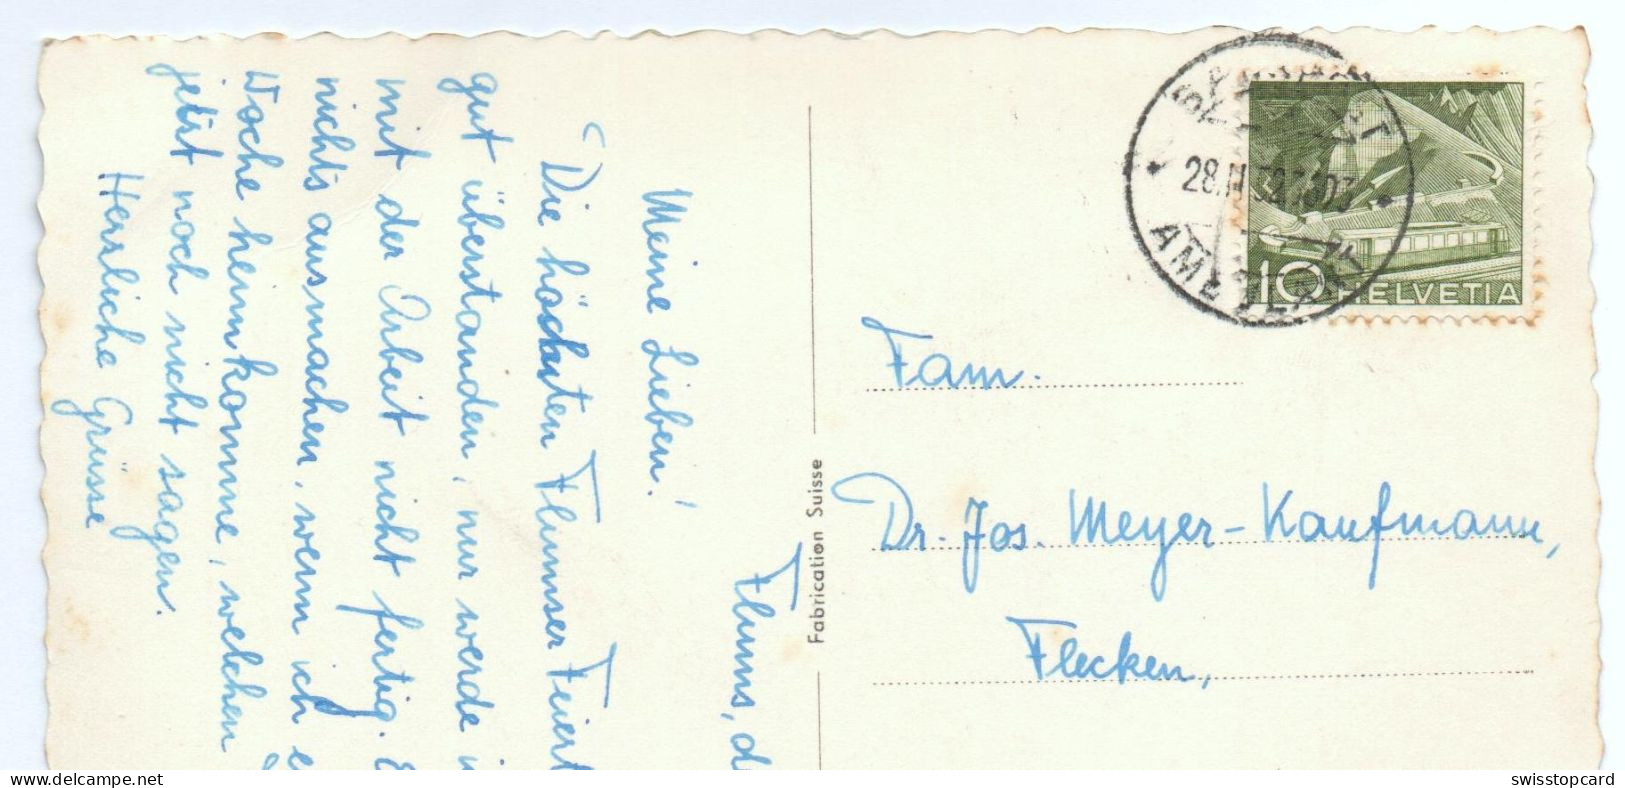 Flums, d
Meine Lieben!
Die höchsten Flumser Feiert
gut überstanden, nur werde i
mit der Arbeit nicht fertig. E
nichts ausmachen, wenn ich e
Woche heimkomme, welchen
jetzt noch nicht sagen.
Herrliche Grüsse
Fabrication Suisse
28.
10 HELVETIA
Fam.
Dr. Jos. Meyer-Kaufmann,
Flecken,
delcampe.net
swisstopcard